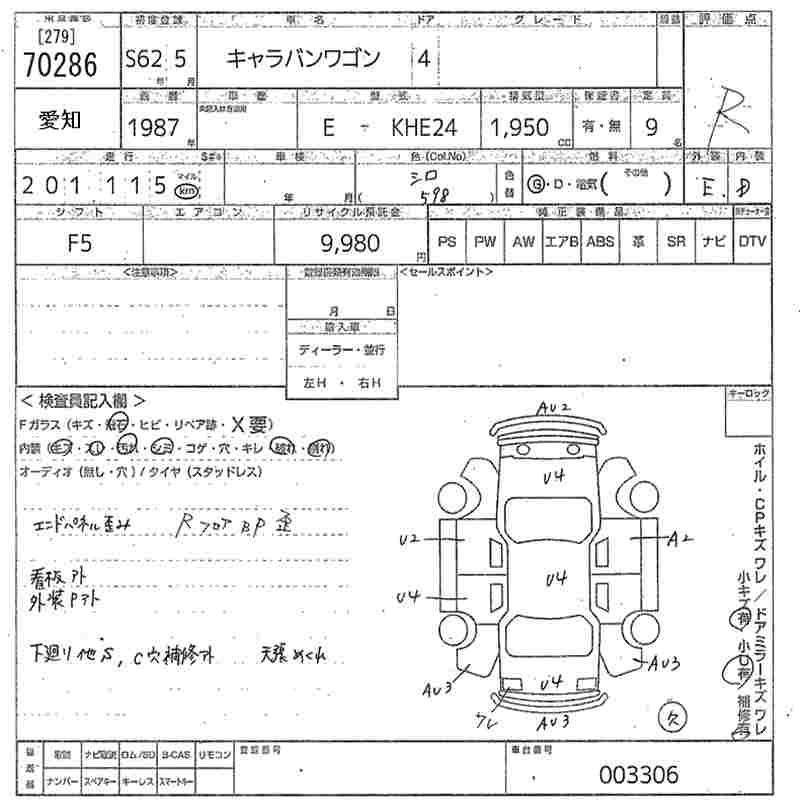 [279]
70286
初度登録
S62 5
年 月
車名
キャラバンワゴン
ドア
4
グレード
評価点
R
愛知
1987
年
車歴
型式
E - KHE24
排気量
1,950
CC
保証書
有・無
定員
9
名
走行
201115
マイル
km
車検
年 月
色(Col.No)
シロ
598
色替
燃料
G・D・電気( その他 )
外装
E
内装
D
シフト
F5
エアコン
リサイクル預託金
9,980
円
純正装備品
PS PW AW エアB ABS 革 SR ナビ DTV
<注意事項>
月 日
輸入車
ディーラー・並行
左H・右H
<セールスポイント>
<検査員記入欄>
Fガラス(キズ・飛石・ヒビ・リペア跡・X要)
内装(キズ・スレ・汚れ・シミ・コゲ・穴・キレ・破れ・割れ)
オーディオ(無し・穴)/タイヤ(スタッドレス)
エンドパネル歪み RフロアBP歪
看板アト
外装Pアト
下廻り他S,C穴補修アト 天張めくれ
キーロック
ホイル・CPキズワレ/ドアミラーキズワレ
小キズ有/小U有/補修有
AU2
U4
U2
A2
U4
U4
AU3
AU3
U4
ワレ
AU3
欠
取説 ナビ取説 ロム/SD B-CAS リモコン
ナンバー スペアキー キーレス スマートキー
登録番号
車台番号
003306